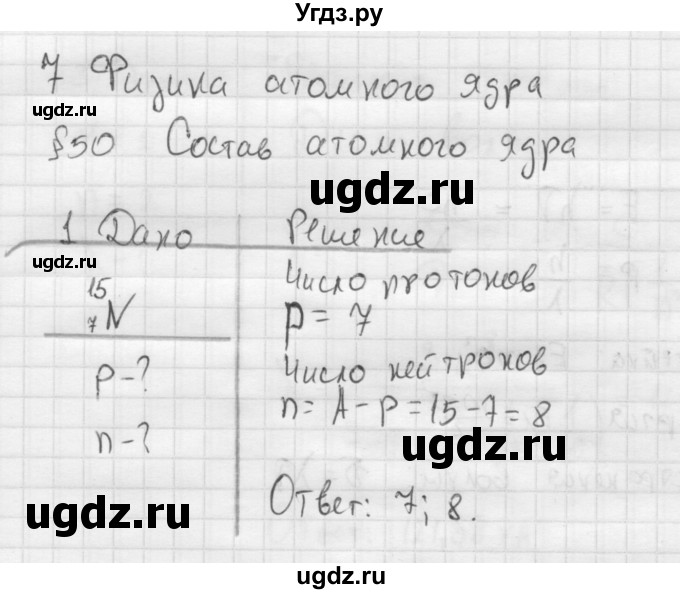 Угдз.ру
7 Физика атомного ядра
§50 Состав атомного ядра
ugdz.ru
ugdz.ru
1 Дано
Решение
ugdz.ru
15
7 N
Число протонов
p = 7
ugdz.ru
p-?
Число нейтронов
n-?
n = A - p = 15 - 7 = 8
ugdz.ru
Ответ: 7; 8.
ugdz.ru
ugdz.ru